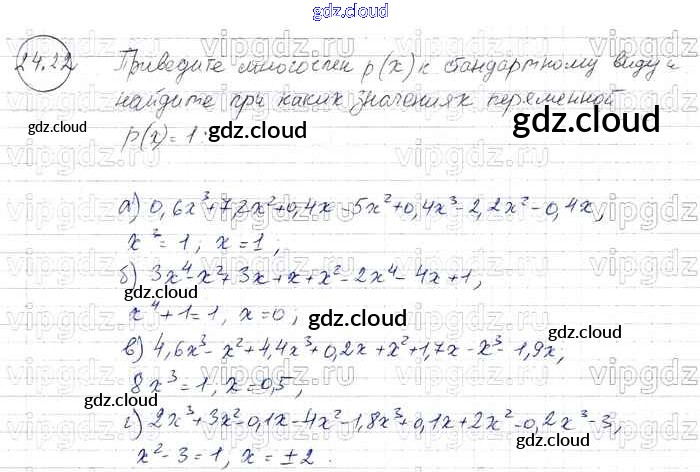 gdz.cloud
24.22 Приведите многочлен p(x) к стандартному виду и
найдите при каких значениях переменной
gdz.cloud
gdz.cloud
p(x) = 1.
а) 0,6x³+7,2x²+0,4x-5x²+0,4x³-2,2x²-0,4x,
x³=1, x=1;
gdz.cloud
б) 3x⁴-x²+3x+x+x²-2x⁴-4x+1,
gdz.cloud
x⁴+1=1, x=0;
gdz.cloud
gdz.cloud
в) 4,6x³-x²+4,4x³+0,2x+x²+1,7x-x³-1,9x,
8x³=1, x=0,5;
gdz.cloud
gdz.cloud
г) 2x³+3x²-0,1x-4x²-1,8x³+0,1x+2x²-0,2x³-3,
x²-3=1, x=±2.
gdz.cloud